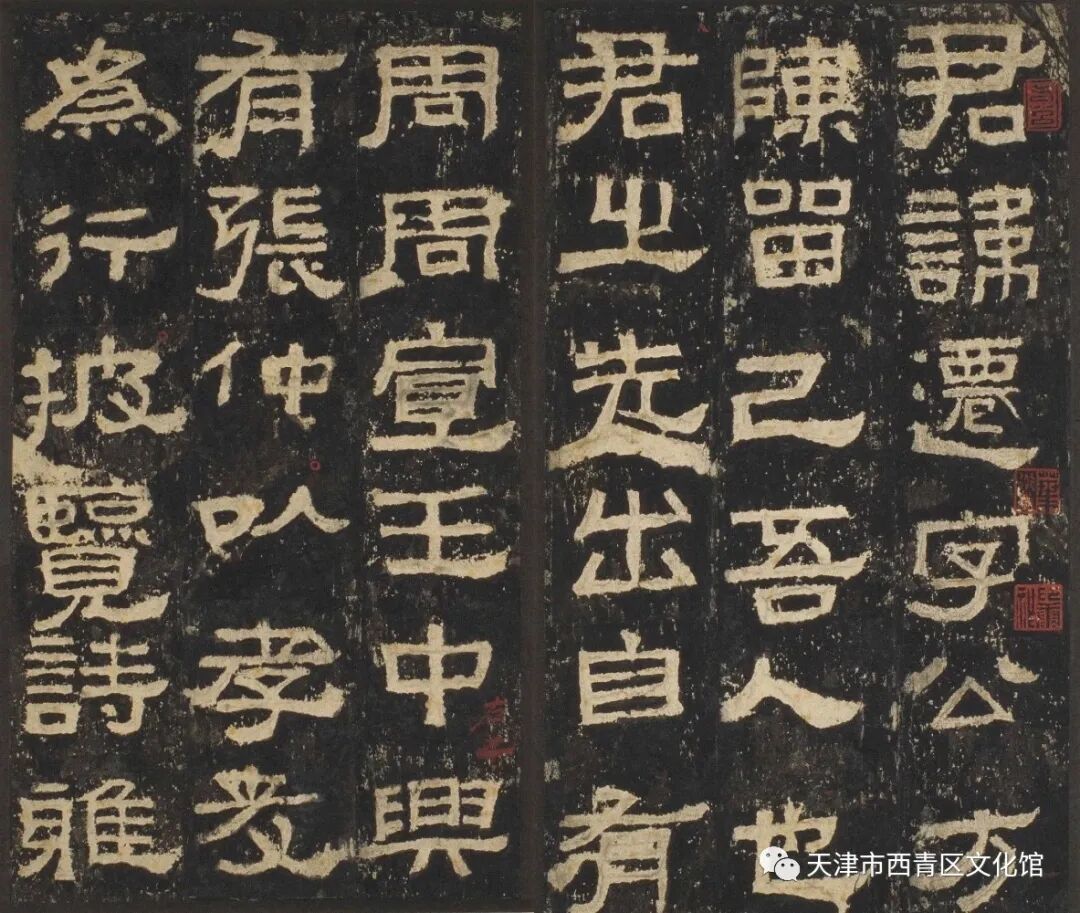 君諱遷字公方
陳留己吾人也
君之先出自有
周周宣王中興
有張仲以孝友
為行披覽詩雅
天津市西青区文化馆